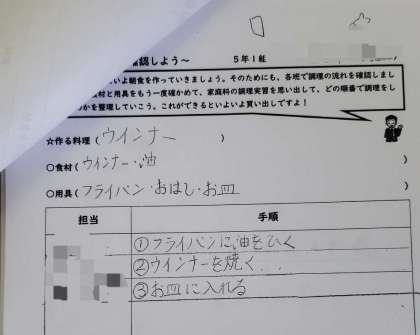 確認しよう～　５年１組
いよ朝食を作っていきましょう。そのためにも、各班で調理の流れを確認しまし
食材と用具をもう一度確かめて、家庭科の調理実習を思い出して、どの順番で調理をし
のかを整理していこう。これができるといよいよ買い出しですよ！
☆作る料理（ウインナー　）
○食材（ウインナー・油
○用具（フライパン・おはし・お皿
担当　手順
①フライパンに油をひく
②ウインナーを焼く...
③お皿に入れる